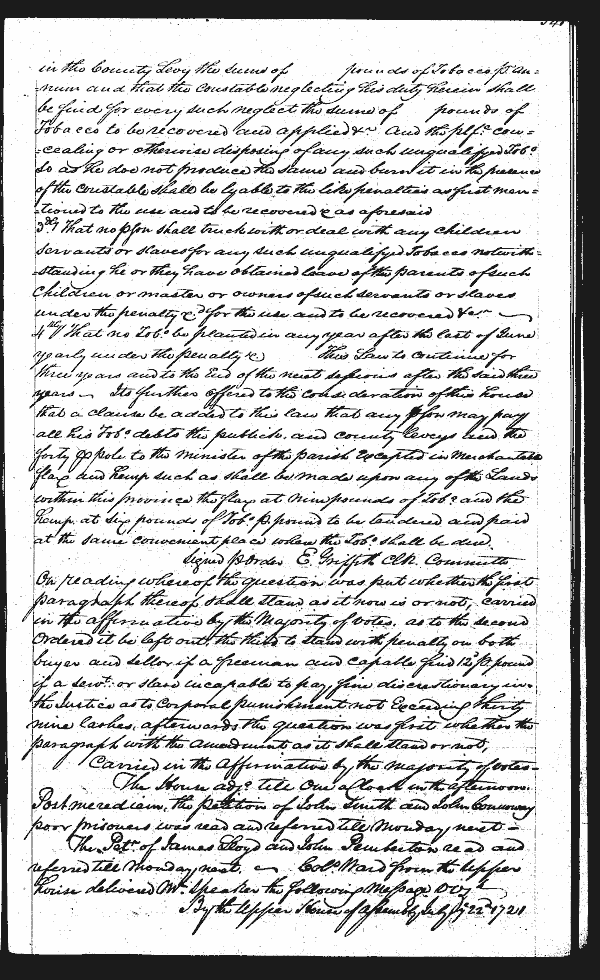 in the County Levy the sume of pounds of Tobacco p̲ An=
num and that the Constable neglecting his duty herein shall
be find for every such neglect the sume of pounds of
Tobacco to be recovered and applied &c And the p̲son con=
=cealing or otherwise disposing of any such unqualifyed Tobo
so as he doe not produce the same and burn it in the presence
of the Constable shall be lyable to the like penalties as first men=
=tioned to the use and to be recovered & as aforesaid
3dly That no p̲son shall truck with or deal with any Children
Servants or slaves for any such unqualifyed Tobacco notwith=
=standing he or they have obtained leave of the parents of such
Children or master or owners of such servants or slaves
under the penalty &c for the use and to be recovered &c
4thly That no Tobo be planted in any year after the last of June
yearly under the penalty &c This Law to continue for
three years and to the End of the next sessions after the said three
years Its further offered to the consideration of this house
that a clause be added to this law that any p̲son may pay
all his Tobo debts the publick, and County leveys and the
forty p̲ pole to the minister of the parish Excepted in Merchantable
flax and hemp such as shall be made upon any of the Lands
within this province the flax at nine pounds of Tobo and the
hemp at six pounds of Tobo p̲ pound to be tendered and paid
at the same convenient place where the Tobo shall be due.
Signed p̲ Order E. Griffith Clk. Committe
On reading whereof the question was put whether the first
paragraph thereof shall stand as it now is or not, carried
in the affirmative by the Majority of votes. as to the second
Ordered it be left out, the third to stand with penalty on both
buyer and sellor if a freeman and capable find 12d p̲ pound
if a servt: or slave incapable to pay fine discretionary in
the Justice as to Corporal punishment not Exceeding thirty
nine lashes, afterwards the question was first whether the
paragraph with the amendment as it shall stand or not,
Carried in the Affirmative by the majority of votes
The House adjd till One a Clock in the afternoon.
Post merediem, the petition of John Smith and John Connoway
poor prisoners was read and referred till Monday next =
The Petn of James Lloyd and John Pemberton read and
referred till Monday next. Colo Ward from the Upper
house delivered Mr Speaker the following Message Vizt
By the Upper House of Assembly July ye 22d 1721